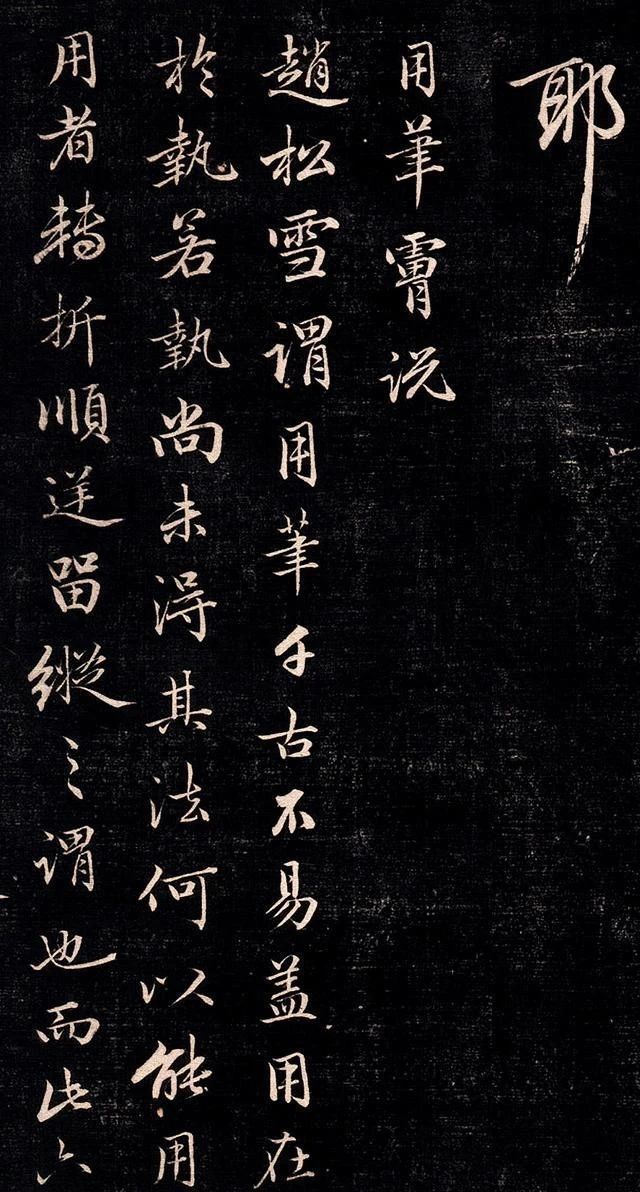 耶
用筆膚说
趙松雪谓用筆千古不易盖用在
於執若執尚未得其法何以能用
用者轉折順逆留縱之谓也而此六